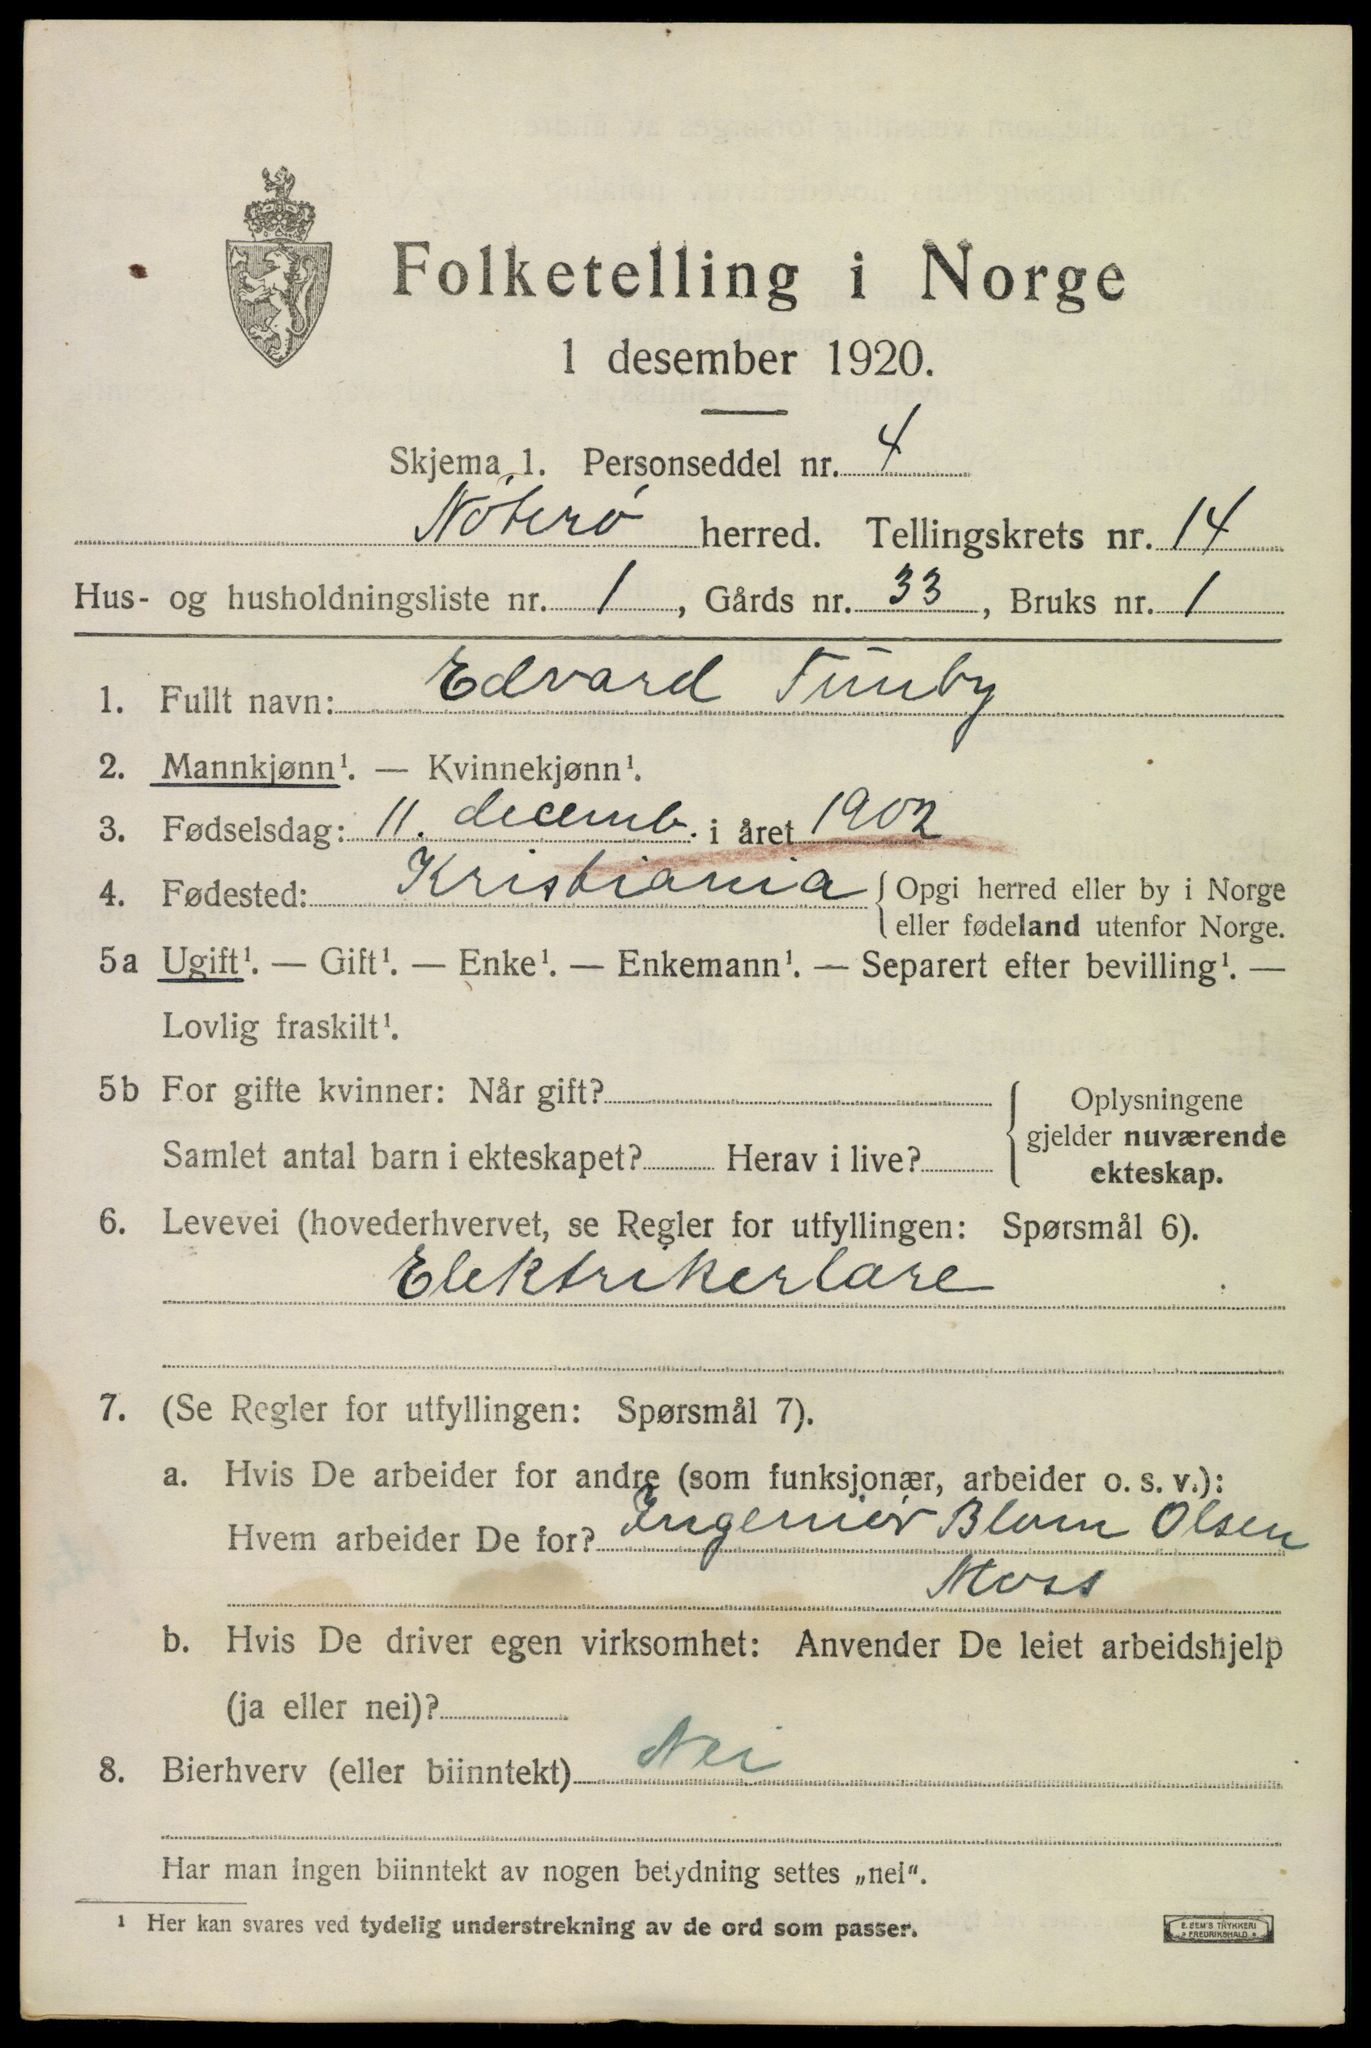 Folketelling i Norge
1 desember 1920.
Skjema 1. Personseddel nr. 4
Nøterø herred. Tellingskrets nr. 14
Hus- og husholdningsliste nr. 1, Gårds nr. 33, Bruks nr. 1
1. Fullt navn: Edvard Tunby
2. Mannkjønn¹. — Kvinnekjønn¹.
3. Fødselsdag: 11. decemb. i året 1902
4. Fødested: Kristiania { Opgi herred eller by i Norge
eller fødeland utenfor Norge.
5a Ugift¹. — Gift¹. — Enke¹. — Enkemann¹. — Separert efter bevilling¹. —
Lovlig fraskilt¹.
5b For gifte kvinner: Når gift?
Samlet antal barn i ekteskapet? Herav i live?
Oplysningene
gjelder nuværende
ekteskap.
6. Levevei (hovederhvervet, se Regler for utfyllingen: Spørsmål 6).
Elektrikerlære
7. (Se Regler for utfyllingen: Spørsmål 7).
a. Hvis De arbeider for andre (som funksjonær, arbeider o. s. v.):
Hvem arbeider De for? Ingeniør Blom Olsen
Moss
b. Hvis De driver egen virksomhet: Anvender De leiet arbeidshjelp
(ja eller nei)?
8. Bierhverv (eller biinntekt) Nei
Har man ingen biinntekt av nogen betydning settes „nei“.
¹ Her kan svares ved tydelig understrekning av de ord som passer.
E. SEM'S TRYKKERI
FREDRIKSHALD